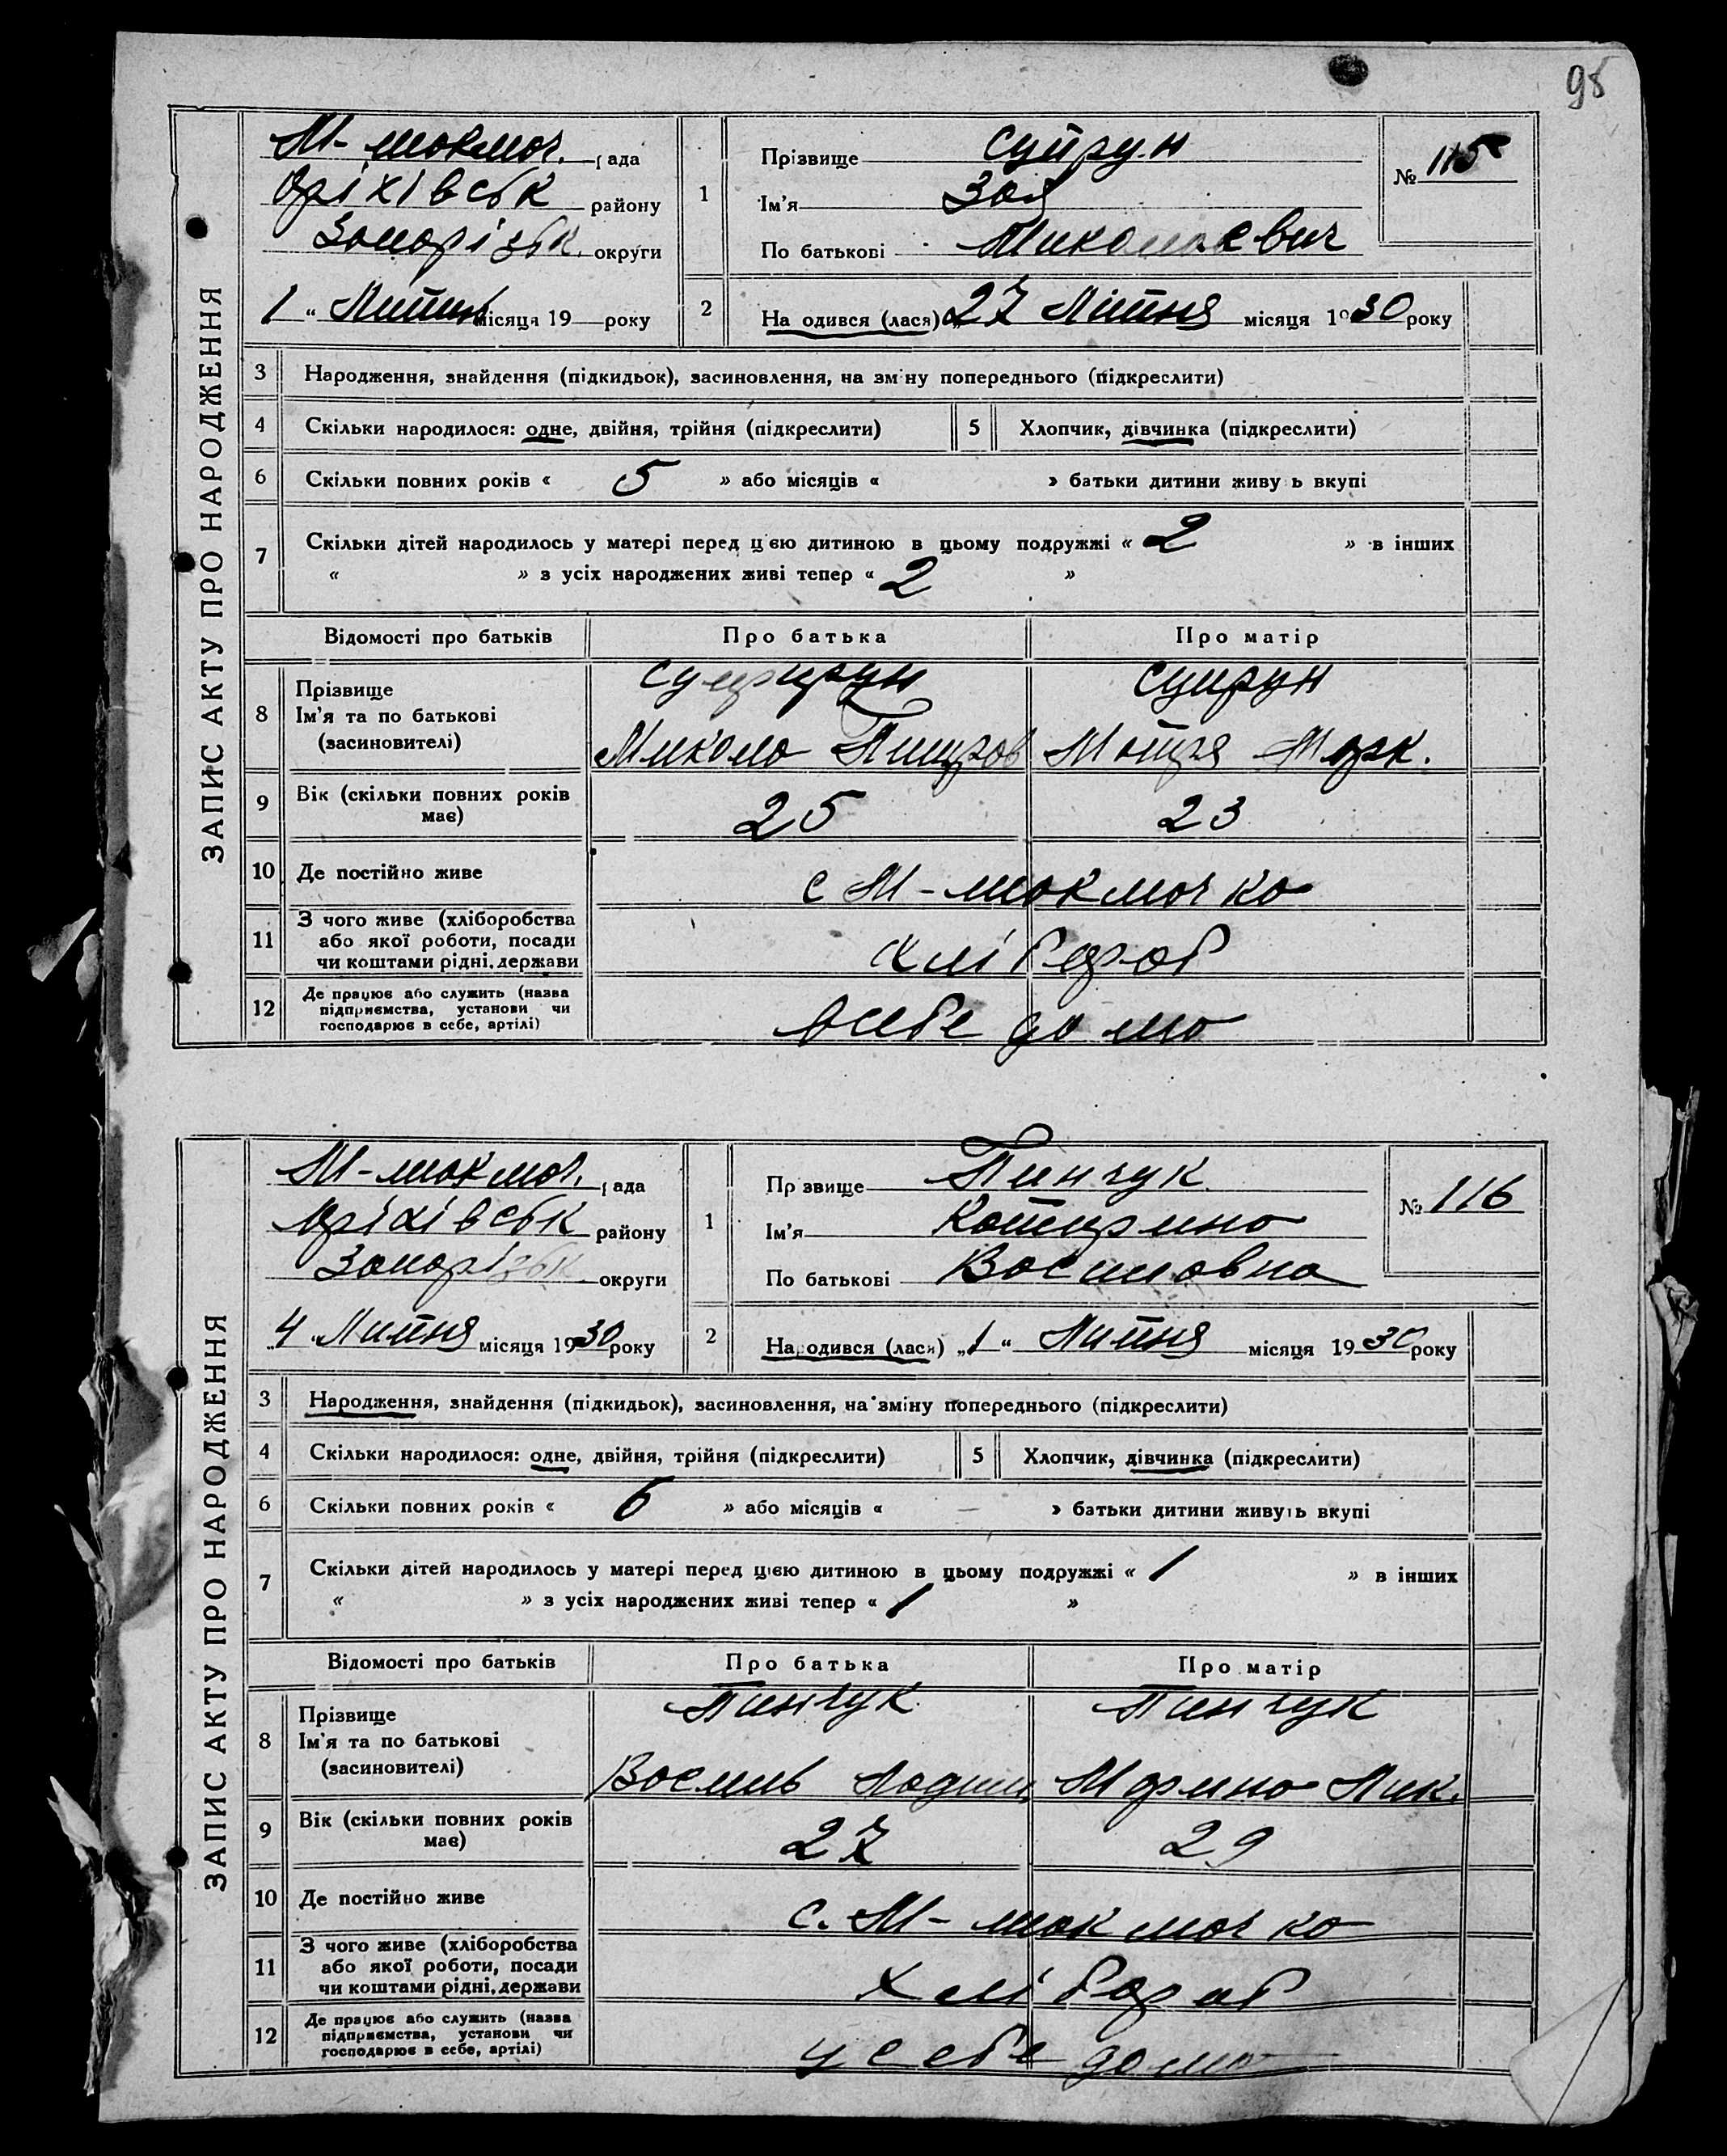 98
ЗАПИС АКТУ ПРО НАРОДЖЕННЯ
М-токмач. рада
Оріхівськ району
Запорізьк. округи
1 " Липня місяця 19 року
1
Прізвище Супрун
Ім'я Зоя
По батькові Миколаевич
№ 115
2
На одився (лася) 27 Липня місяця 1930 року
3 Народження, знайдення (підкидьок), засиновлення, на зміну попереднього (підкреслити)
4 Скільки народилося: одне, двійня, трійня (підкреслити)
5 Хлопчик, дівчинка (підкреслити)
6 Скільки повних років « 5 » або місяців « » батьки дитини живу ь вкупі
7 Скільки дітей народилось у матері перед цією дитиною в цьому подружжі « 2 » в інших
« » з усіх народжених живі тепер « 2 »
Відомості про батьків Про батька Про матір
8 Прізвище
Ім'я та по батькові
(засиновителі)
Супрун Супрун
Микола Мотря Марк.
9 Вік (скільки повних років має) 25 23
10 Де постійно живе с М-токмачка
11 З чого живе (хліборобства
або якої роботи, посади
чи коштами рідні, держави
хлібороб
12 Де працює або служить (назва
підприємства, установи чи
господарює в себе, артілі)
всебе дома
ЗАПИС АКТУ ПРО НАРОДЖЕННЯ
М-токмач. рада
Оріхівськ району
Запорізьк округи
„4 " Липня місяця 1930 року
1
Пр звище Пинчук
Ім'я Катирина
По батькові Василовна
№ 116
2
Народився (лася) „1 " Липня місяця 1930 року
3 Народження, знайдення (підкидьок), засиновлення, на зміну попереднього (підкреслити)
4 Скільки народилося: одне, двійня, трійня (підкреслити)
5 Хлопчик, дівчинка (підкреслити)
6 Скільки повних років « 6 » або місяців « — » батьки дитини живуть вкупі
7 Скільки дітей народилось у матері перед цією дитиною в цьому подружжі « 1 » в інших
« » з усіх народжених живі тепер « 1 »
Відомості про батьків Про батька Про матір
8 Прізвище
Ім'я та по батькові
(засиновителі)
Пинчук Пинчук
Василь Марина Лик.
9 Вік (скільки повних років має) 27 29
10 Де постійно живе с. М-токмачка
11 З чого живе (хліборобства
або якої роботи, посади
чи коштами рідні, держави
хлібороб
12 Де працює або служить (назва
підприємства, установи чи
господарює в себе, артілі)
у себе дома